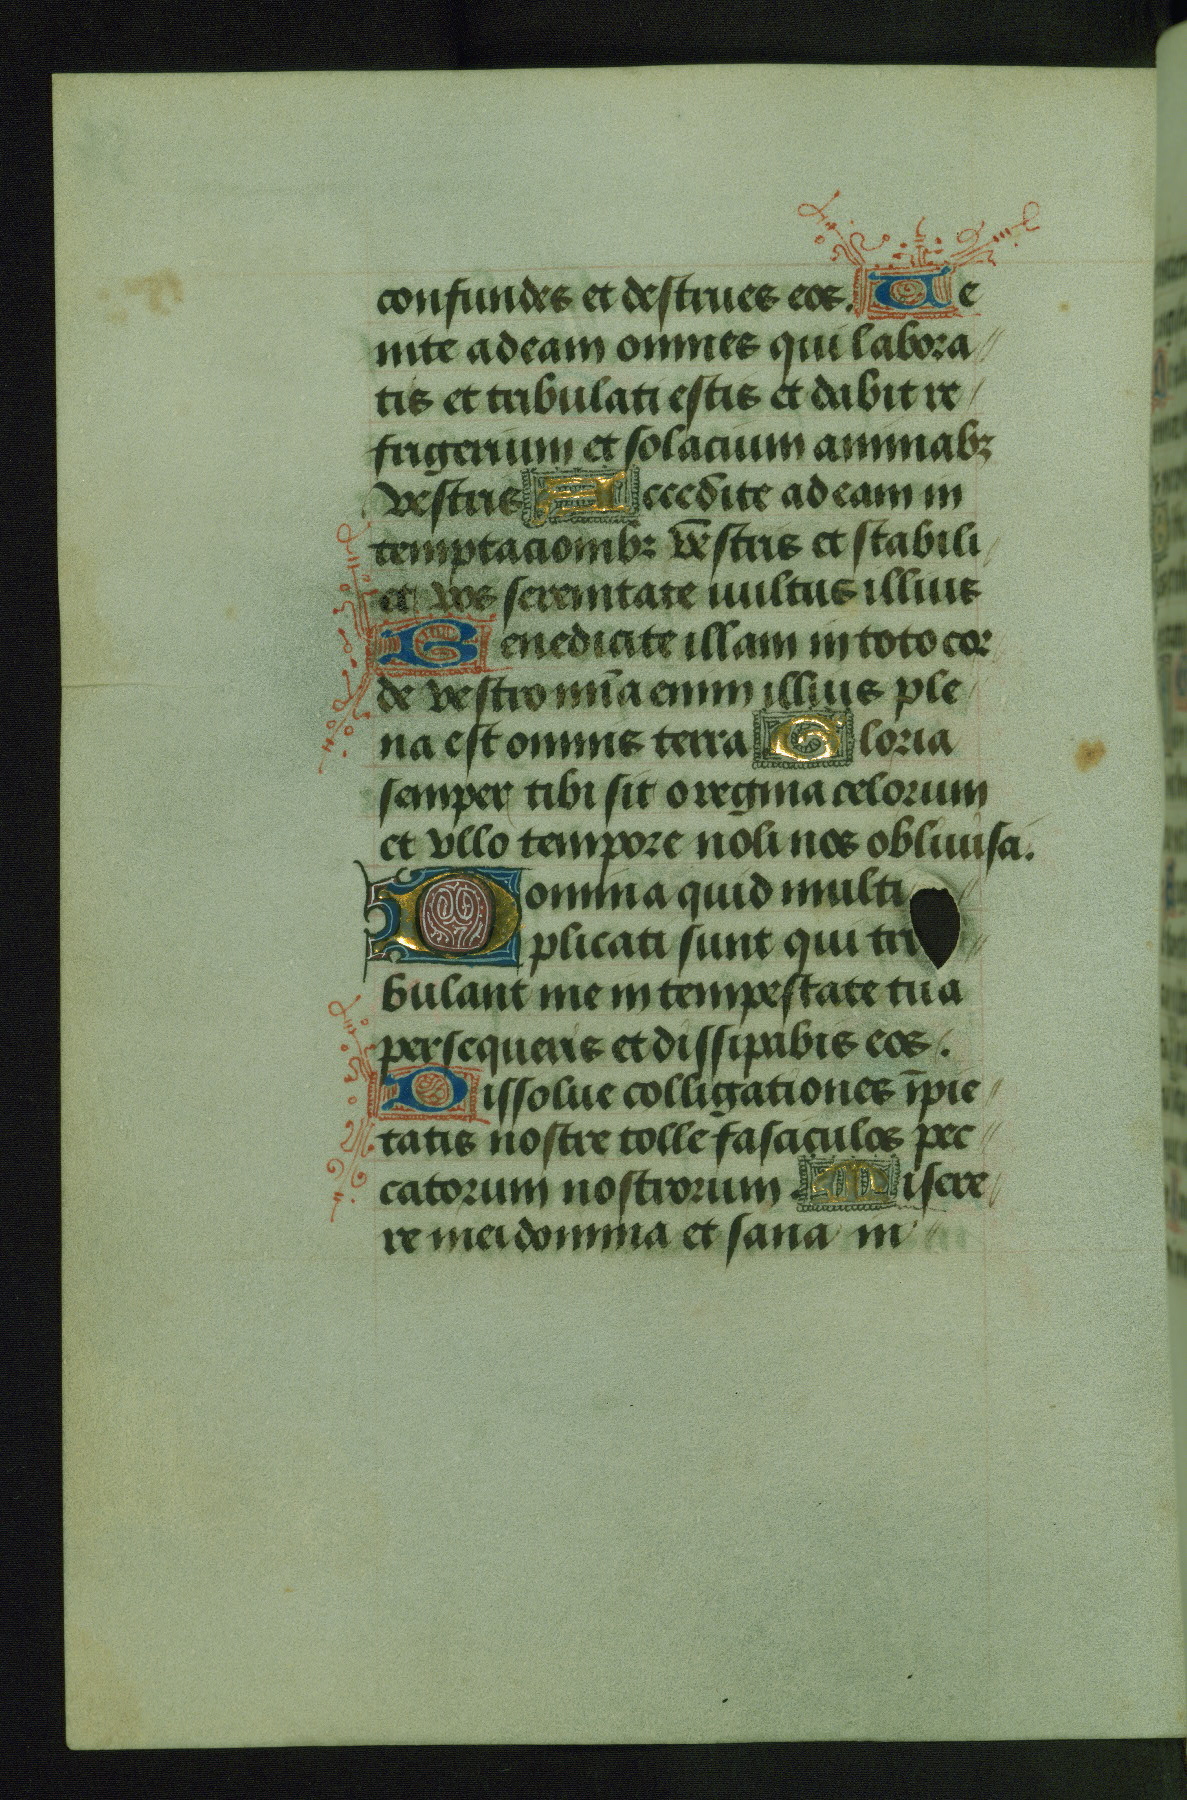 confundes et destrues eos. Ue
nite ad eam omnes qui labora
tis et tribulati estis et dabit re
frigerium et solacium animabꝫ
vestris Accedite ad eam in
temptacionibꝫ vestris et stabili
et vos serenitate uultus illius
Benedicite illam in toto cor
de vestro mīa enim illius ple
na est omnis terra Gloria
semper tibi sit o regina celorum
et vllo tempore noli nos obliuisci.
Domina quid multi
plicati sunt qui tri
bulant me in tempestate tua
persequeris et dissipabis eos.
Dissolue colligationes īpie
tatis nostre tolle fasciculos pec
catorum nostrorum Misere
re mei domina et sana in